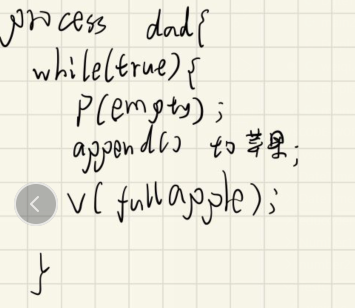 process dad{
while(true){
P(empty);
append() to 苹果;
V(fullapple);
}